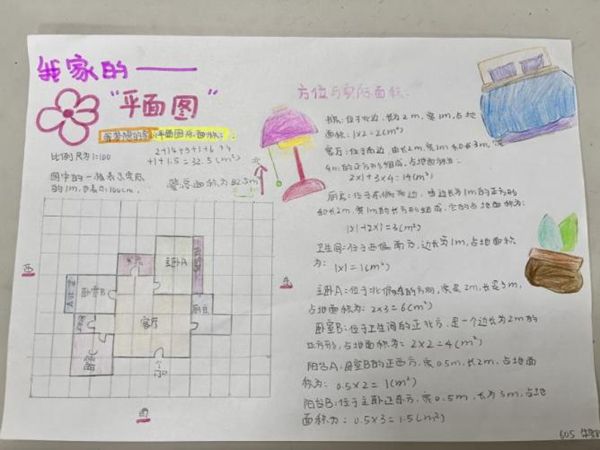 我家的——
“平面图”
平面图房面积:
2+14+3+1+6+4
+1+1.5=32.5(m²)
比例尺为1:100
图中的一格表示实际
的1m,也表示100cm。
总面积为32.5m²
北
西
东
南
主卧A
卧室B
客厅
卧室C
门
方位与实际面积:
位于北边,长为2m,宽1m,占地
面积:1×2=2(m²)
客厅:位于南边,由长2m,宽1m和
4m的正方形组成,占地面积为:
2×1+3×4=14(m²)
厨房:位于东偏南边,边长为1m的正方形
和长2m,宽1m的长方形组成,它的占地面积为:
1×1+2×1=3(m²)
卫生间:位于西偏南方,边长为1m,占地面积
为:1×1=1(m²)
主卧A:位于北偏东的方向,宽是2m,长是3m,
占地面积为:2×3=6(m²)
卧室B:位于卫生间的正北方,是一个边长为2m的
正方形,占地面积为:2×2=4(m²)
阳台A:卧室B的正西方,宽0.5m,长2m,占地面
积为:0.5×2=1(m²)
阳台B:位于主卧正东方,宽0.5m,长为3m,占地
面积为:0.5×3=1.5(m²)